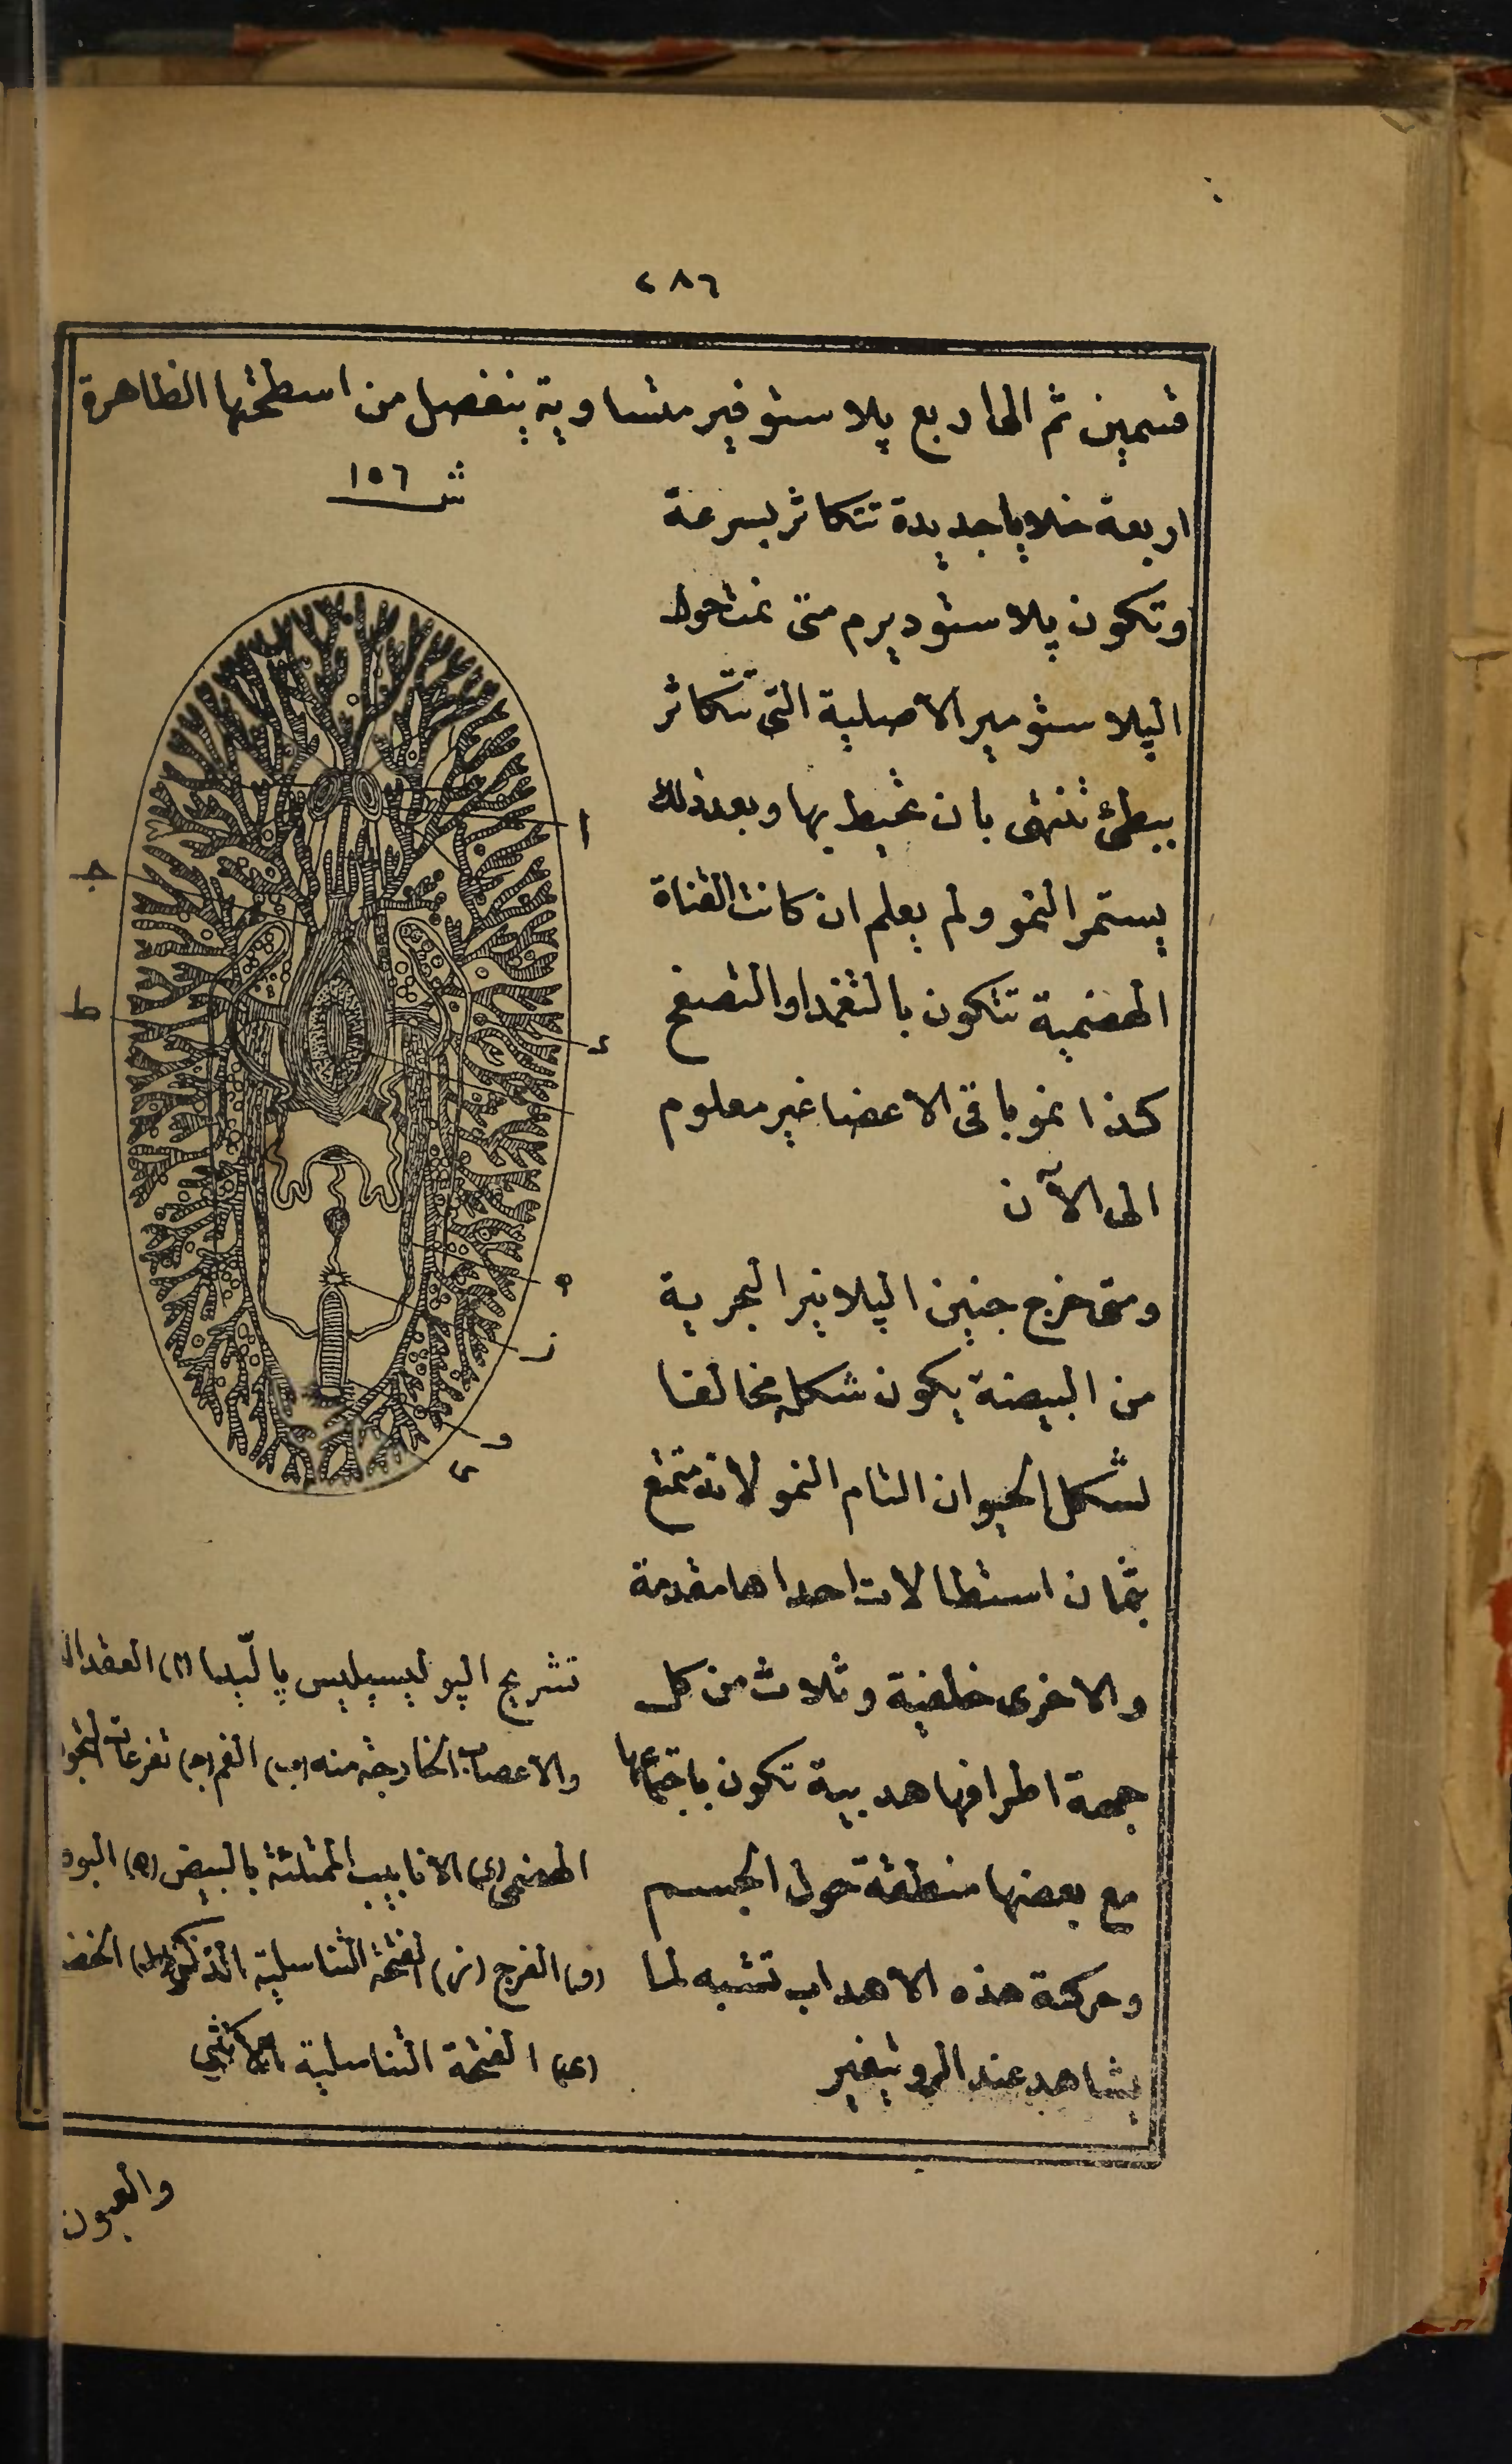 ٢٨٦
قسمين ثم الى اربع پلاستوفير متساوية ينفصل من اسطحتها الظاهرة
ش ١٥٦
اربعة خلايا جديدة تتكاثر بسرعة
وتكون پلاستوديرم متى نمت حول
الپلاستومير الاصلية التى تتكاثر
ببطئ تنتهى بان تحيط بها وبعد ذلك
يستمر النمو ولم يعلم ان كانت القناة
الهضمية تتكون بالتغمد او التصفح
كذا نمو باقى الاعضا غير معلوم
الى الآن
ومتى خرج جنين الپلانير البحرية
من البيضة يكون شكله مخالفا
لشكل الحيوان التام النمو لانه متمتع
بثمان استطالات احداها مقدمة
والاخرى خلفية وثلاث من كل
جهة اطرافها هدبية تكون باجتماعها
مع بعضها منطقة حول الجسم
وحركة هذه الاهداب تشبه لما
يشاهد عند الروتيفير
ا
ج
ط
د
ه
ز
و
ى
تشريح الپوليسيليس پالّيدا (ا) العقد
والاعصاب الخارجة منه (ب) الفم (ج) تفرعات
الهضمى (د) الانابيب الممتلئة بالبيض (ه) البوق
(و) الفرج (ز) الفتحة التناسلية الذكر (ط)
(ى) الفتحة التناسلية الانثى
والعيون